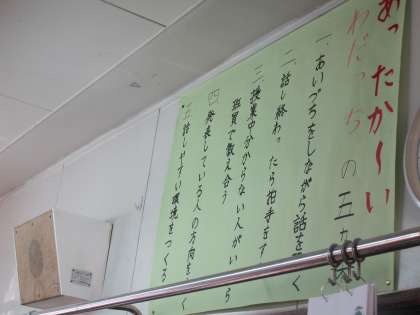 あったか〜い
わだっちの五か
一、あいづちをしながら話をく
二、話し終わったら拍手をす
三、授業中分からない人がいら
班員で教え合う
四、発表している人の方向をく
五、話しやすい環境をつくる